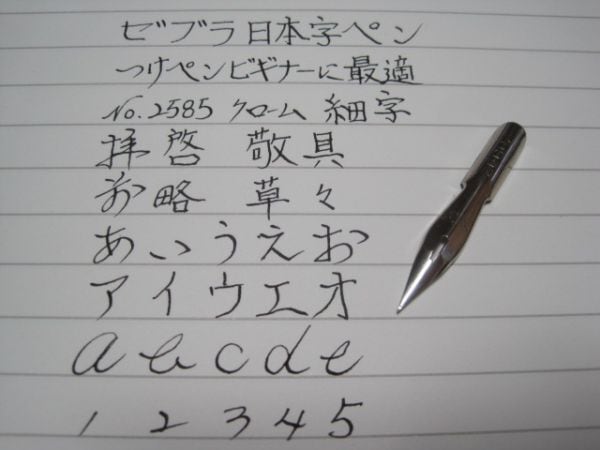 ゼブラ日本字ペン
つけペンビギナーに最適
No.2585 クローム 細字
拝啓 敬具
前略 草々
あいうえお
アイウエオ
a b c d e
1 2 3 4 5